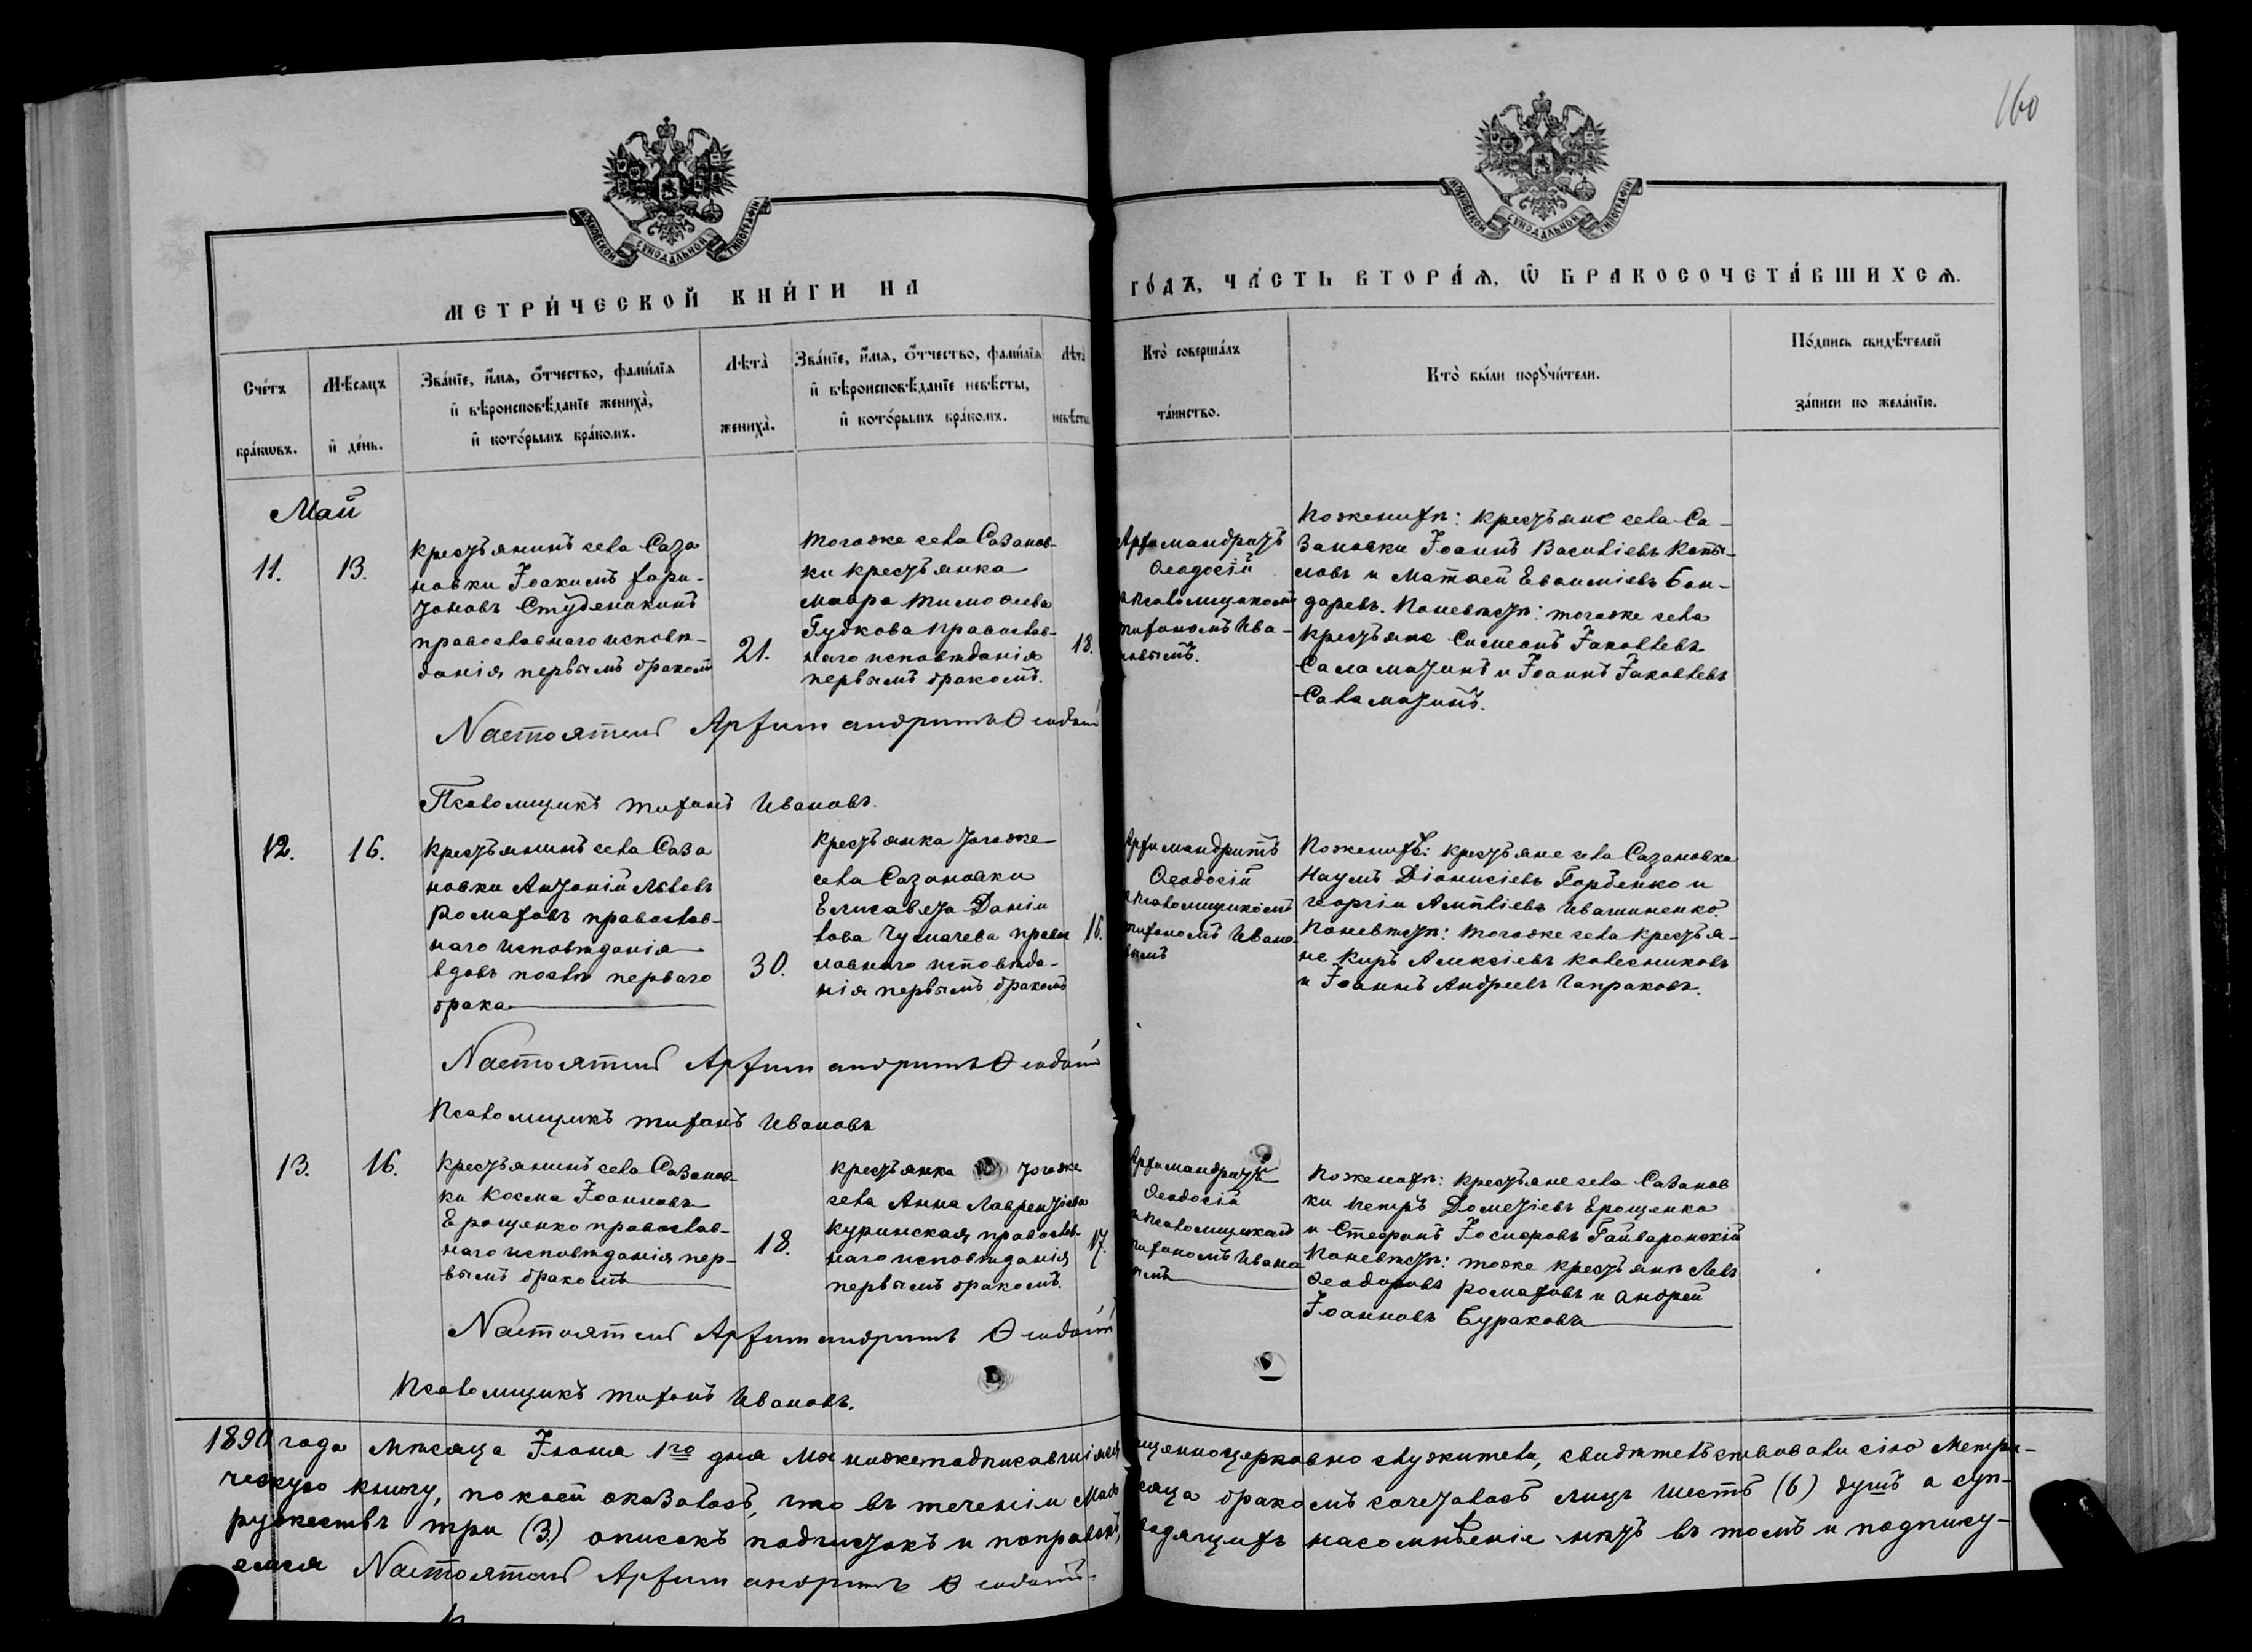 160
МОСКОВСКОЙ СѴНОДАЛЬНОЙ ТИПОГРАФІИ
МОСКОВСКОЙ СѴНОДАЛЬНОЙ ТИПОГРАФІИ
МЕТРИ́ЧЕСКОЙ КНИ́ГИ НА
ГО́ДЪ, ЧА́СТЬ ВТОРА́Я, Ѿ БРАКОСОЧЕТА́ВШИХСЯ.
Сче́тъ
бра́кѡвъ.
Мѣ́сяцъ
и҆ де́нь.
Зва́нїе, и҆́мя, ѻ҆́тчество, фами́лїя
и҆ вѣроисповѣ́данїе жениха̀,
и҆ кото́рымъ бра́комъ.
Лѣта̀
жениха̀.
Зва́нїе, и҆́мя, ѻ҆́тчество, фами́лїя
и҆ вѣроисповѣ́данїе невѣ́сты,
и҆ кото́рымъ бра́комъ.
Лѣта̀
невѣ́сты
Кто̀ соверша́лъ
та́инство.
Кто̀ бы́ли порꙋчи́тели.
По́дпись свидѣ́телей
за́писи по жела́нїю.
Май
11.
13.
Крестьянинъ села Саза
новки Іоакимъ Хари-
тоновъ Студеникинъ
православнаго исповѣ-
данія первымъ бракомъ
21.
Тогоже села Сазанов-
ки крестьянка
Мавра Тимоѳеева
Гудкова православ-
наго исповѣданія
первымъ бракомъ.
18.
Архимандритъ
Ѳеодосій
и псаломщикомъ
Тихономъ Ива-
новымъ.
По женихѣ: крестьяне села Са-
зановки Іоаннъ Василіевъ Копы-
ловъ и Матѳей Евѳиміевъ Бон-
даревъ. По невѣстѣ: тогоже села
крестьяне Симеонъ Іаковлевъ
Саламатинъ и Іоаннъ Іаковлевъ
Саламатинъ.
Настоятель Архимандритъ Ѳеодосій
Псаломщикъ Тихонъ Ивановъ.
12.
16.
Крестьянинъ села Саза
новки Антоній Львовъ
Ромаховъ православ-
наго исповѣданія
вдовъ послѣ перваго
брака
30.
Крестьянка тогоже
села Сазановки
Елисавета Даніи
лова Чумачева право
славнаго исповѣда-
нія первымъ бракомъ
16.
Архимандритъ
Ѳеодосій
и псаломщикомъ
Тихономъ Ивано-
вымъ
По женихѣ: крестьяне села Сазановка
Наумъ Діонисіевъ Горбенко и
Георгій Ивашиненко.
По невѣстѣ: тогоже села крестья-
не Киръ Алексіевъ Колесниковъ
и Іоаннъ Андреевъ Чапраковъ.
Настоятель Архимандритъ Ѳеодосій
Псаломщикъ Тихонъ Ивановъ
13.
16.
Крестьянинъ села Сазанов-
ки Косма Іоанновъ
Ерощенко православ-
наго исповѣданія пер-
вымъ бракомъ
18.
Крестьянка тогоже
села Анна Лаврентіева
Куринская православ-
наго исповѣданія
первымъ бракомъ.
17.
Архимандритъ
Ѳеодосій
и псаломщикомъ
Тихономъ Ивано
вымъ
По женихѣ: крестьяне села Сазанов
ки Петръ Дометіевъ Ерощенко
и Стефанъ Іосифовъ Гайваронскій
По невѣстѣ: тоже крестьяне Левъ
Ѳеодоровъ Ромаховъ и Андрей
Іоанновъ Бураковъ
Настоятель Архимандритъ Ѳеодосій
Псаломщикъ Тихонъ Ивановъ.
1890 года Мѣсяца Іюня 1го дня Мы нижеподписавшіяся священноцерковно служители, свидѣтельствовали сію Метри-
ческую книгу, по коей оказалось, что въ теченіи Мая мѣсяца бракомъ сочеталось лицъ шесть (6) душъ а суп-
ружествъ три (3.) описокъ подчистокъ и поправокъ, наводящихъ на сомнѣніе нѣтъ въ томъ и подпису-
емся Настоятель Архимандритъ Ѳеодосій